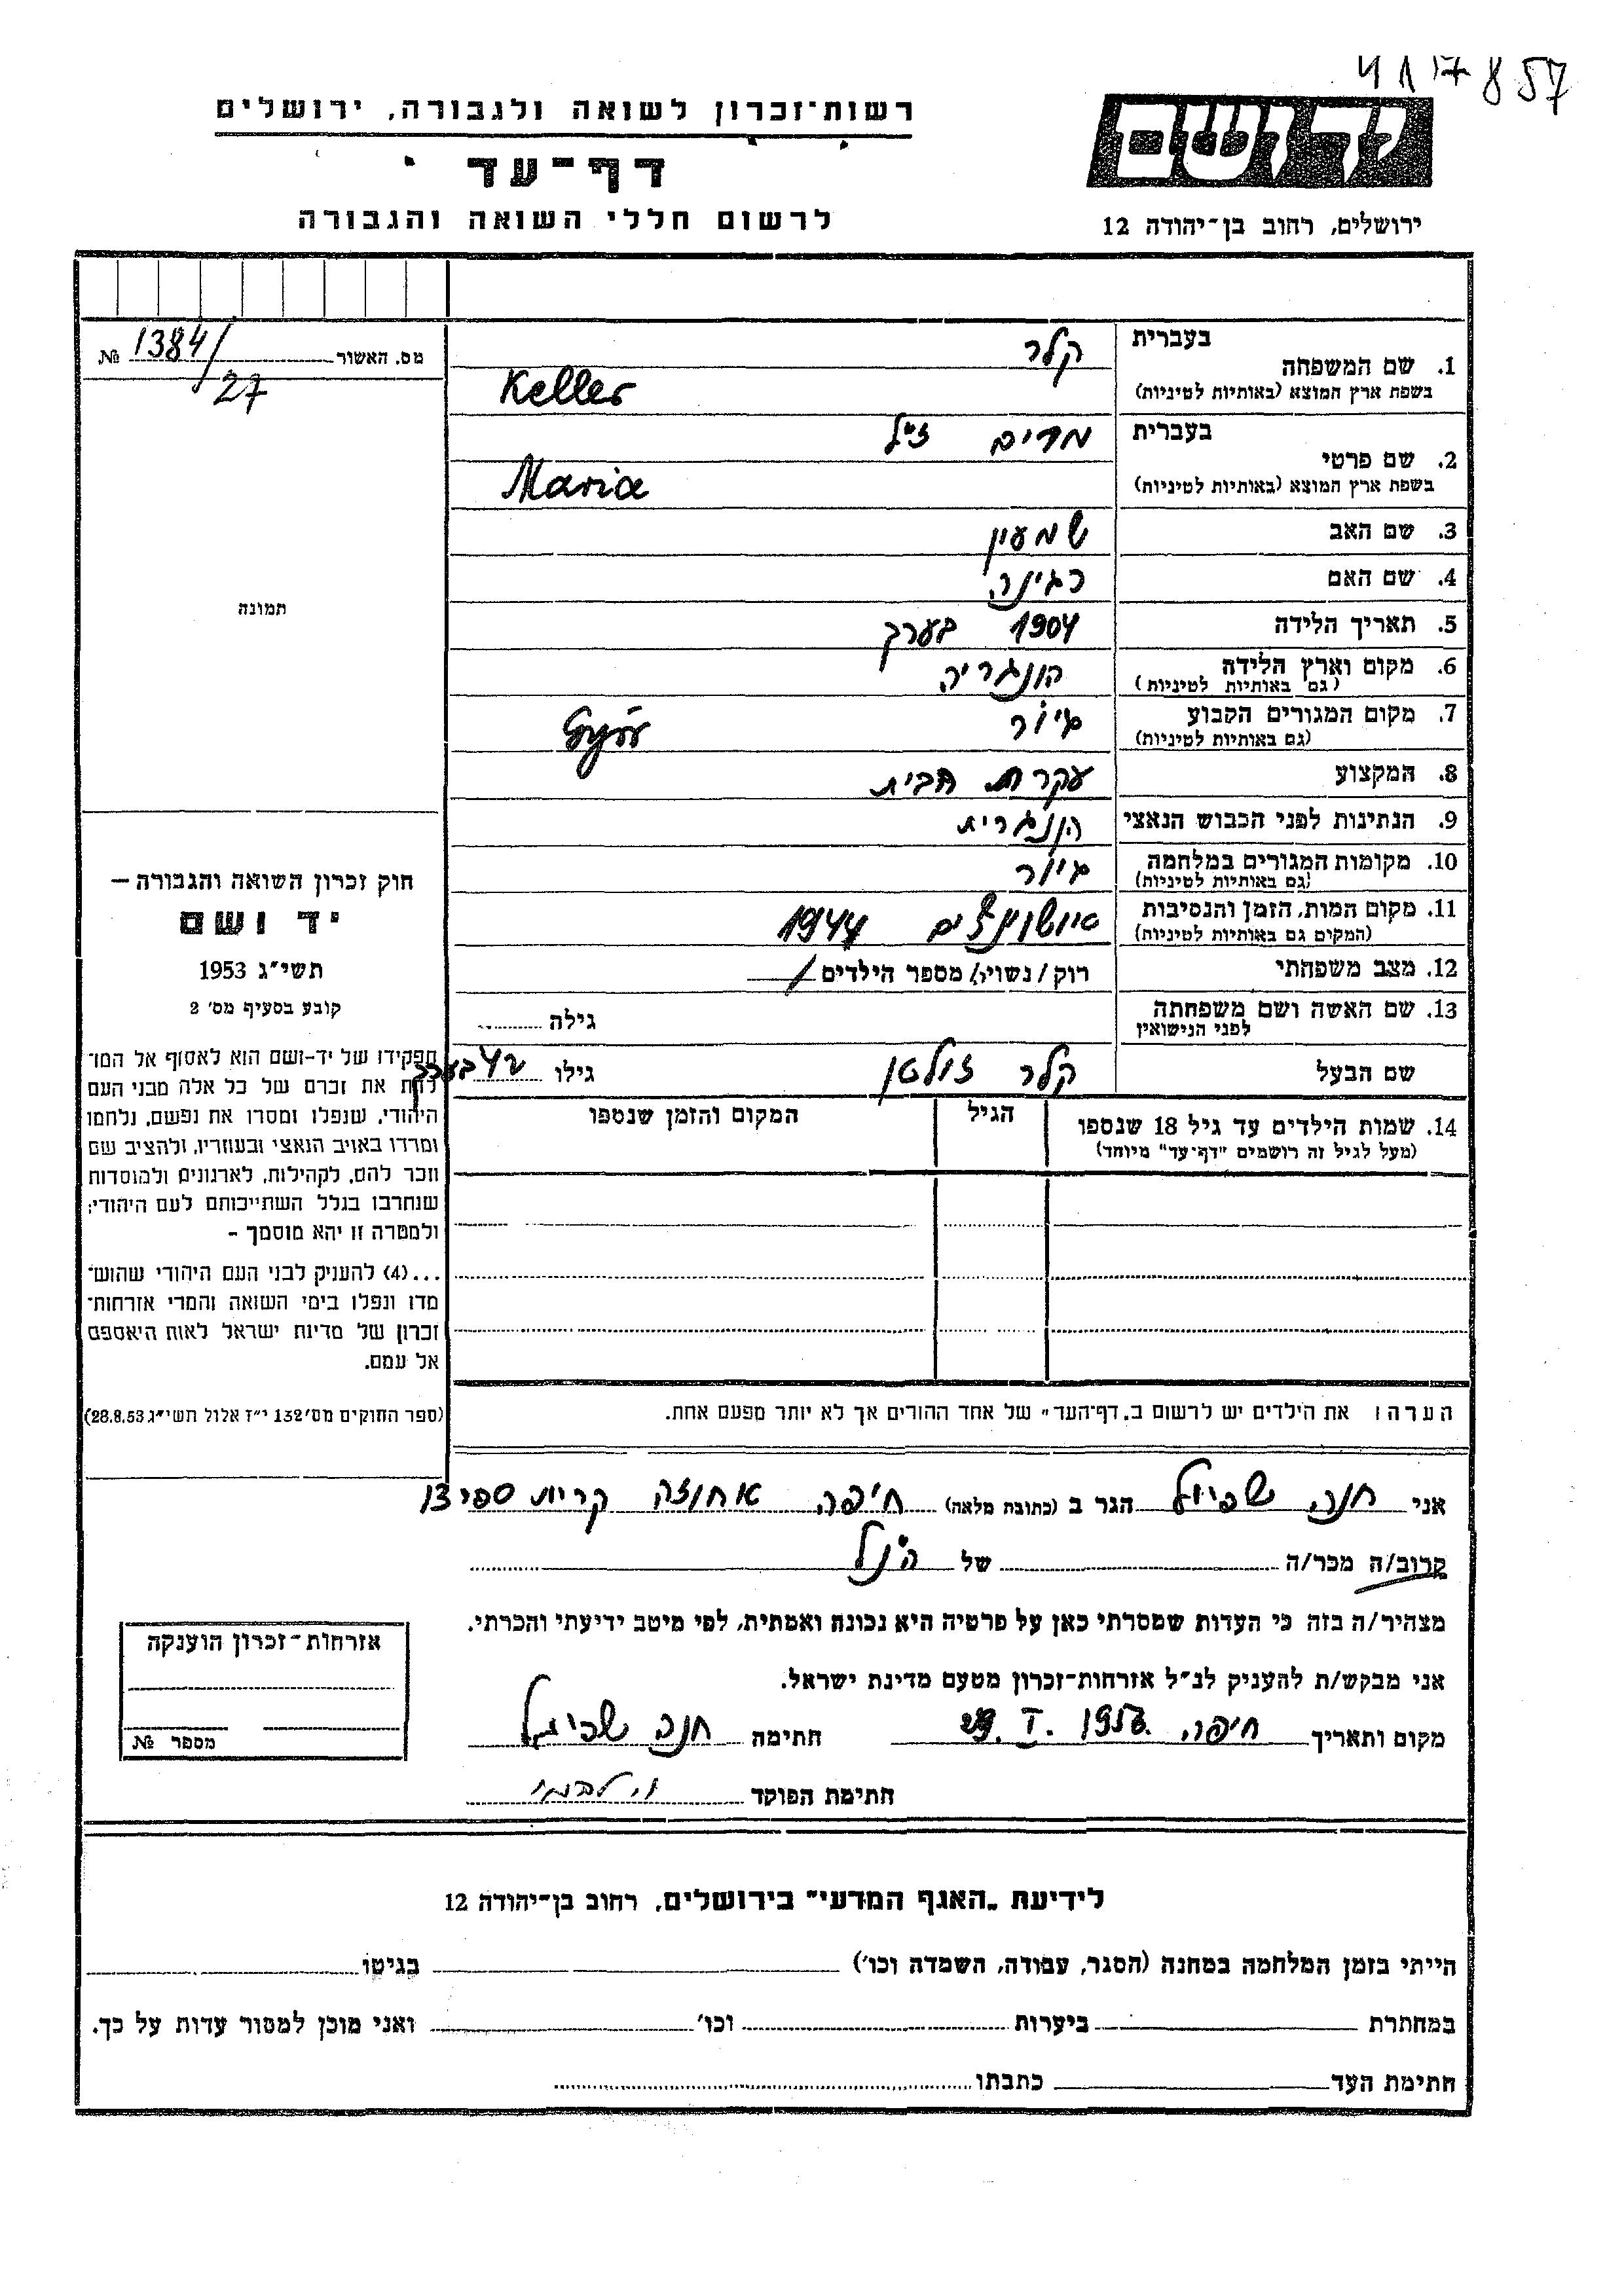 4117857
ידושם
ירושלים, רחוב בן-יהודה 12
רשות-זכרון לשואה ולגבורה, ירושלים
דף-עד
לרשום חללי השואה והגבורה
מס. האשור 1384/27 №
1. שם המשפחה בעברית קלר
בשפת ארץ המוצא (באותיות לטיניות) Keller
2. שם פרטי בעברית מרים ז"ל
בשפת ארץ המוצא (באותיות לטיניות) Maria
3. שם האב שמעון
4. שם האם רגינה
5. תאריך הלידה 1904 בערך
6. מקום וארץ הלידה הונגריה
(גם באותיות לטיניות)
7. מקום המגורים הקבוע גיור Győr
(גם באותיות לטיניות)
8. המקצוע עקרת הבית
9. הנתינות לפני הכבוש הנאצי הונגרית
10. מקומות המגורים במלחמה גיור
(גם באותיות לטיניות)
11. מקום המות, הזמן והנסיבות אושוויצים 1944
(המקום גם באותיות לטיניות)
12. מצב משפחתי רוק / נשוי / מספר הילדים /
13. שם האשה ושם משפחתה גילה
לפני הנישואין
שם הבעל קלר זולטן גילו 42 בערך
14. שמות הילדים עד גיל 18 שנספו הגיל המקום והזמן שנספו
(מעל לגיל זה רושמים "דף-עד" מיוחד)
הערה: את הילדים יש לרשום ב„דף-העד" של אחד ההורים אך לא יותר מפעם אחת.
תמונה
חוק זכרון השואה והגבורה —
יד ושם
תשי"ג 1953
קובע בסעיף מס' 2
תפקידו של יד-ושם הוא לאסוף אל המו-
לדת את זכרם של כל אלה מבני העם
היהודי, שנפלו ומסרו את נפשם, נלחמו
ומרדו באויב הנאצי ובעוזריו, ולהציב שם
וזכר להם, לקהילות, לארגונים ולמוסדות
שנחרבו בגלל השתייכותם לעם היהודי;
ולמטרה זו יהא מוסמך -
...(4) להעניק לבני העם היהודי שהוש-
מדו ונפלו בימי השואה והמרי אזרחות-
זכרון של מדינת ישראל לאות היאספם
אל עמם.
(ספר החוקים מס' 132 י"ז אלול תשי"ג 28.8.53)
אני חנה שפיגל הגר ב (כתובת מלאה) חיפה אחוזה קרית ספר 13
קרוב/ה מכר/ה של הנ"ל
מצהיר/ה בזה כי העדות שמסרתי כאן על פרטיה היא נכונה ואמתית, לפי מיטב ידיעתי והכרתי.
אני מבקש/ת להעניק לנ"ל אזרחות-זכרון מטעם מדינת ישראל.
מקום ותאריך חיפה חתימה חנה שפיגל
חתימת הפוקד
אזרחות-זכרון הוענקה
מספר №
לידיעת „האגף המדעי" בירושלים, רחוב בן-יהודה 12
הייתי בזמן המלחמה במחנה (הסגר, עבודה, השמדה וכו') בגיטו
במחתרת ביערות וכו' ואני מוכן למסור עדות על כך.
חתימת העד כתבתו